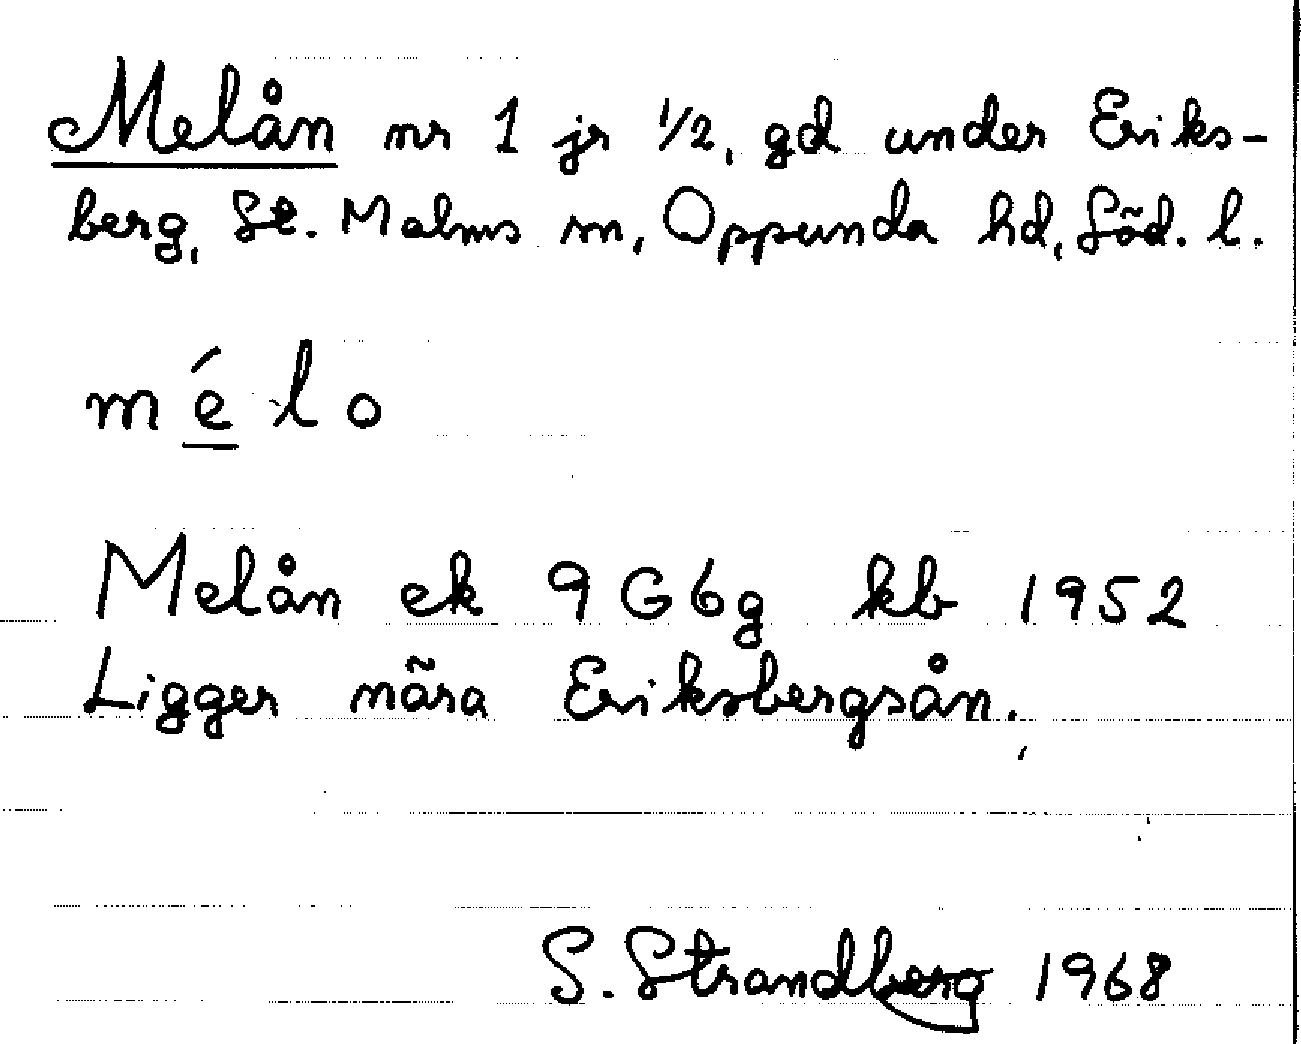 Melån nr 1 jr 1/2, gd under Eriks-
berg, St. Malms sn, Oppunda hd, Söd. l.
mé̱lo
Melån ek 9G6g kb 1952
Ligger nära Eriksbergsån.
S. Strandberg 1968